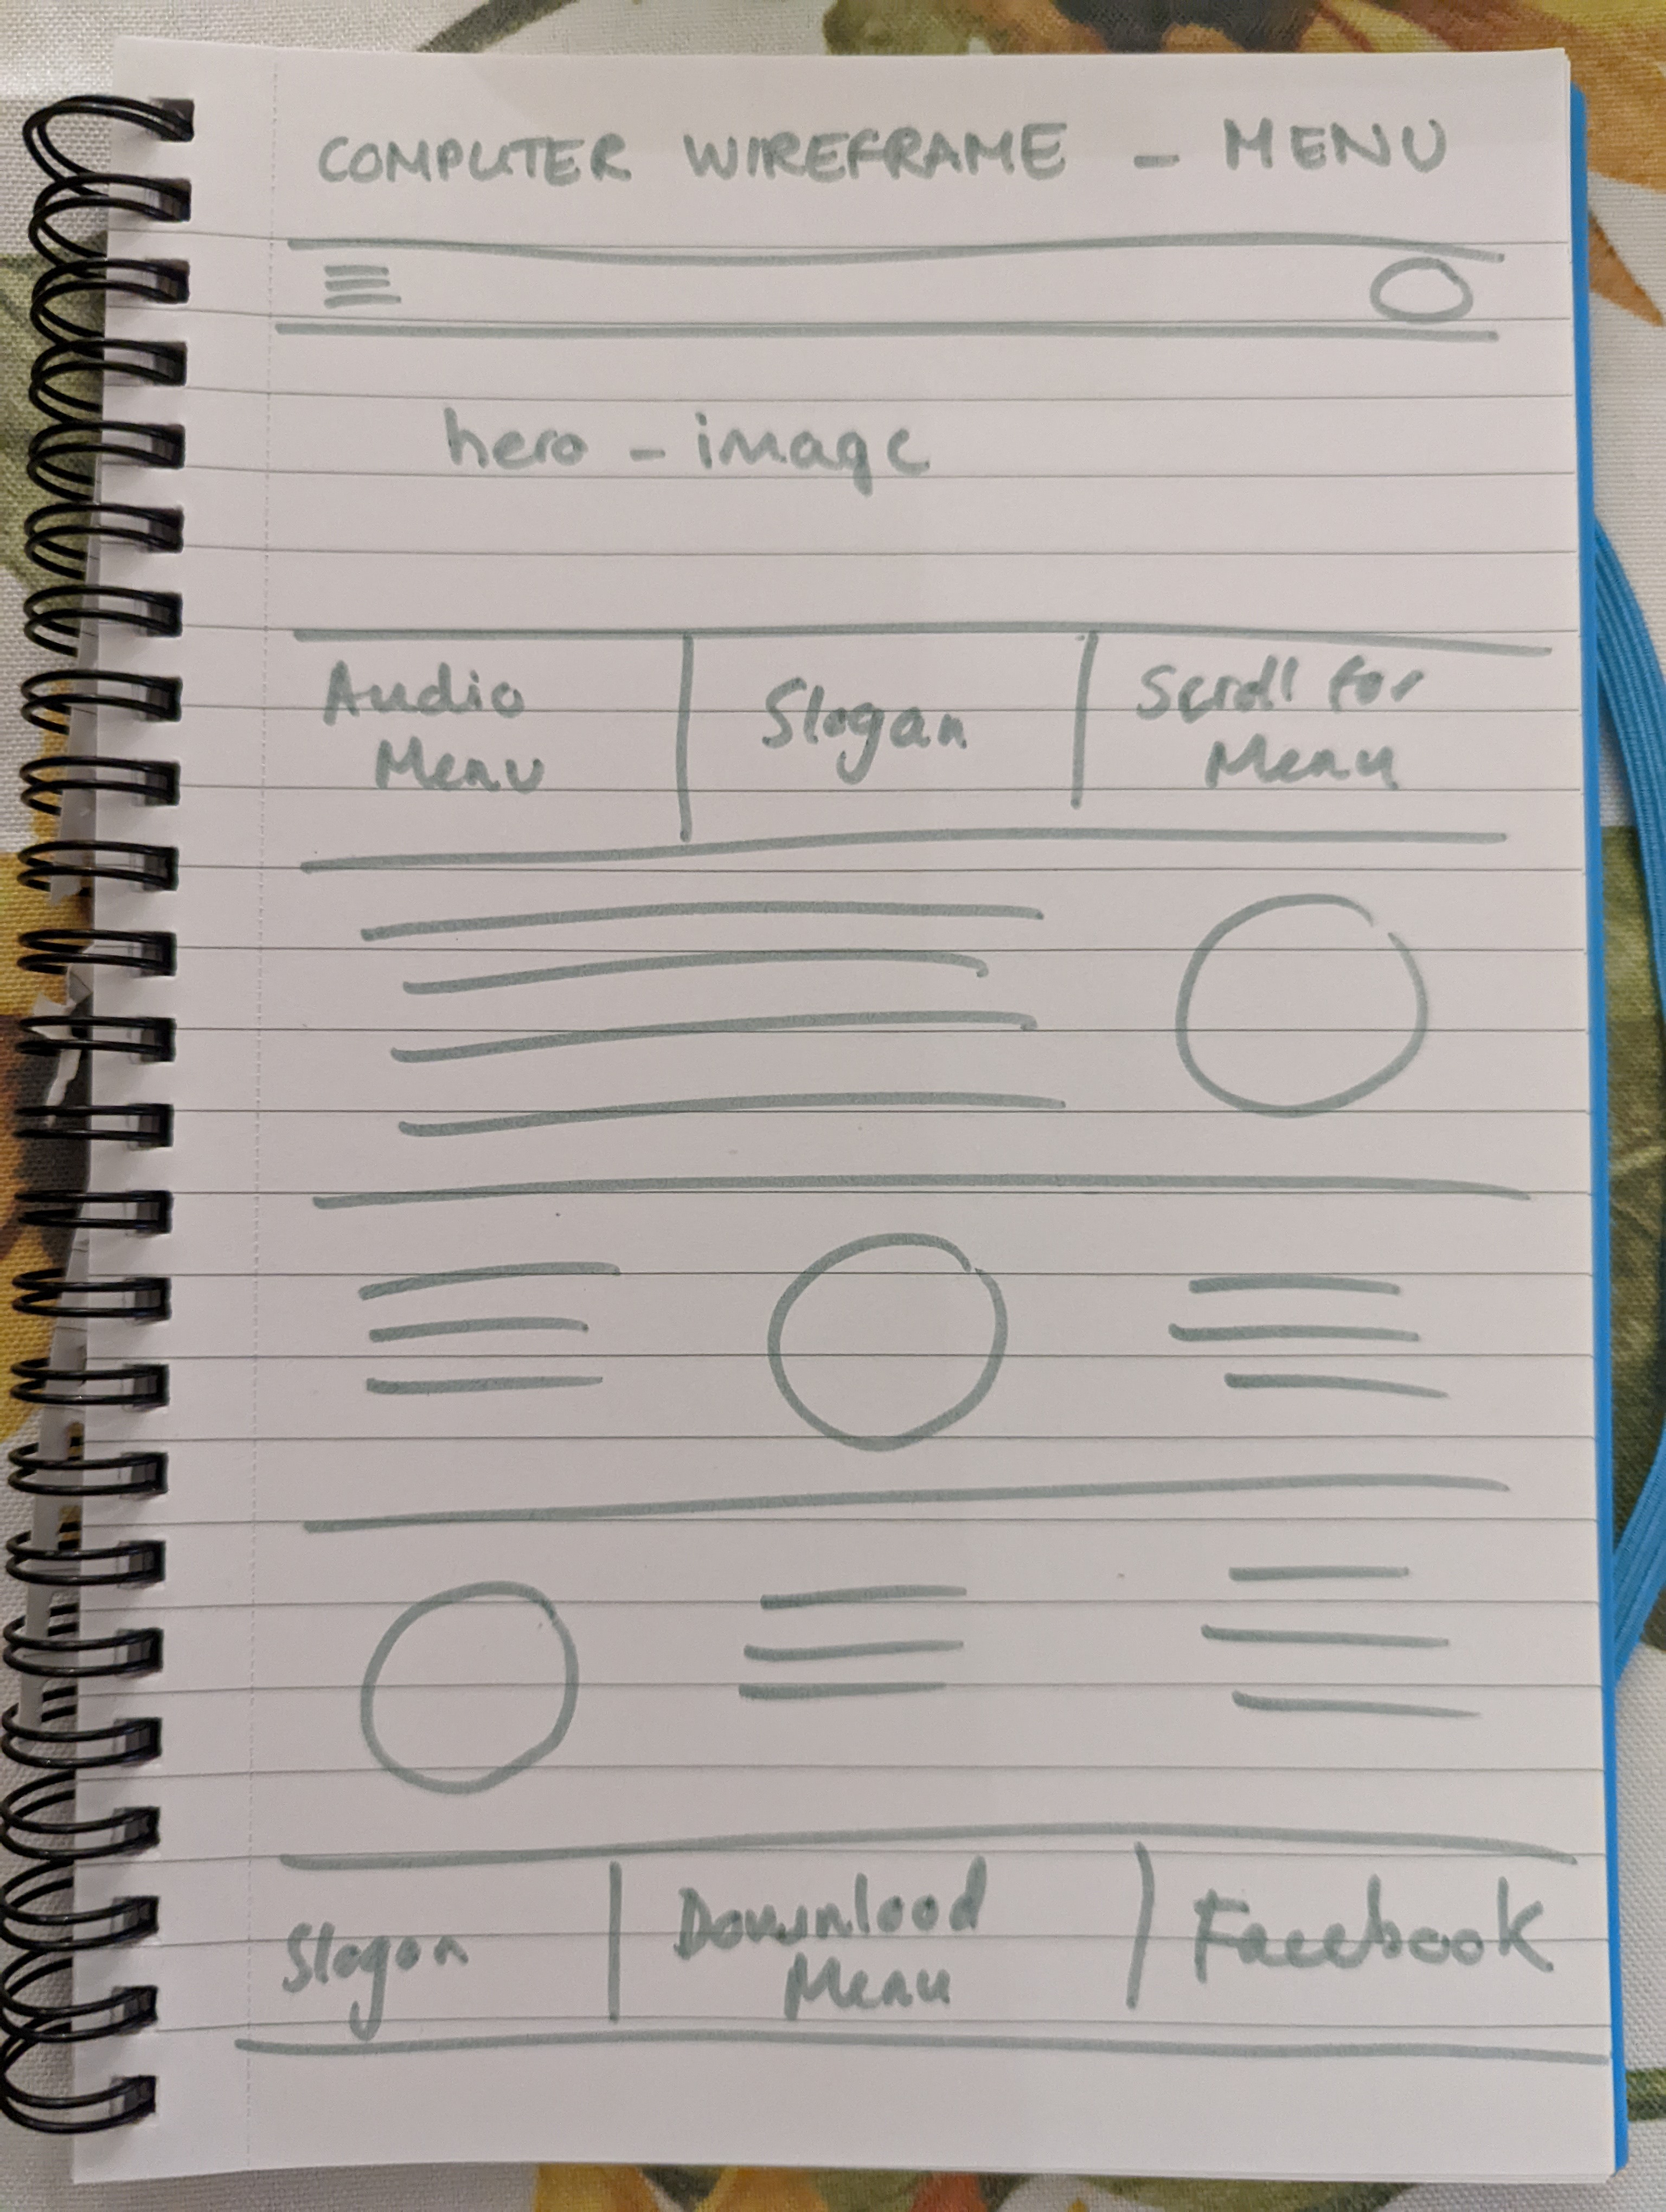 COMPUTER WIREFRAME - MENU
hero - image
Audio
Menu
Slogan
Scroll for
Menu
Slogan
Download
Menu
Facebook